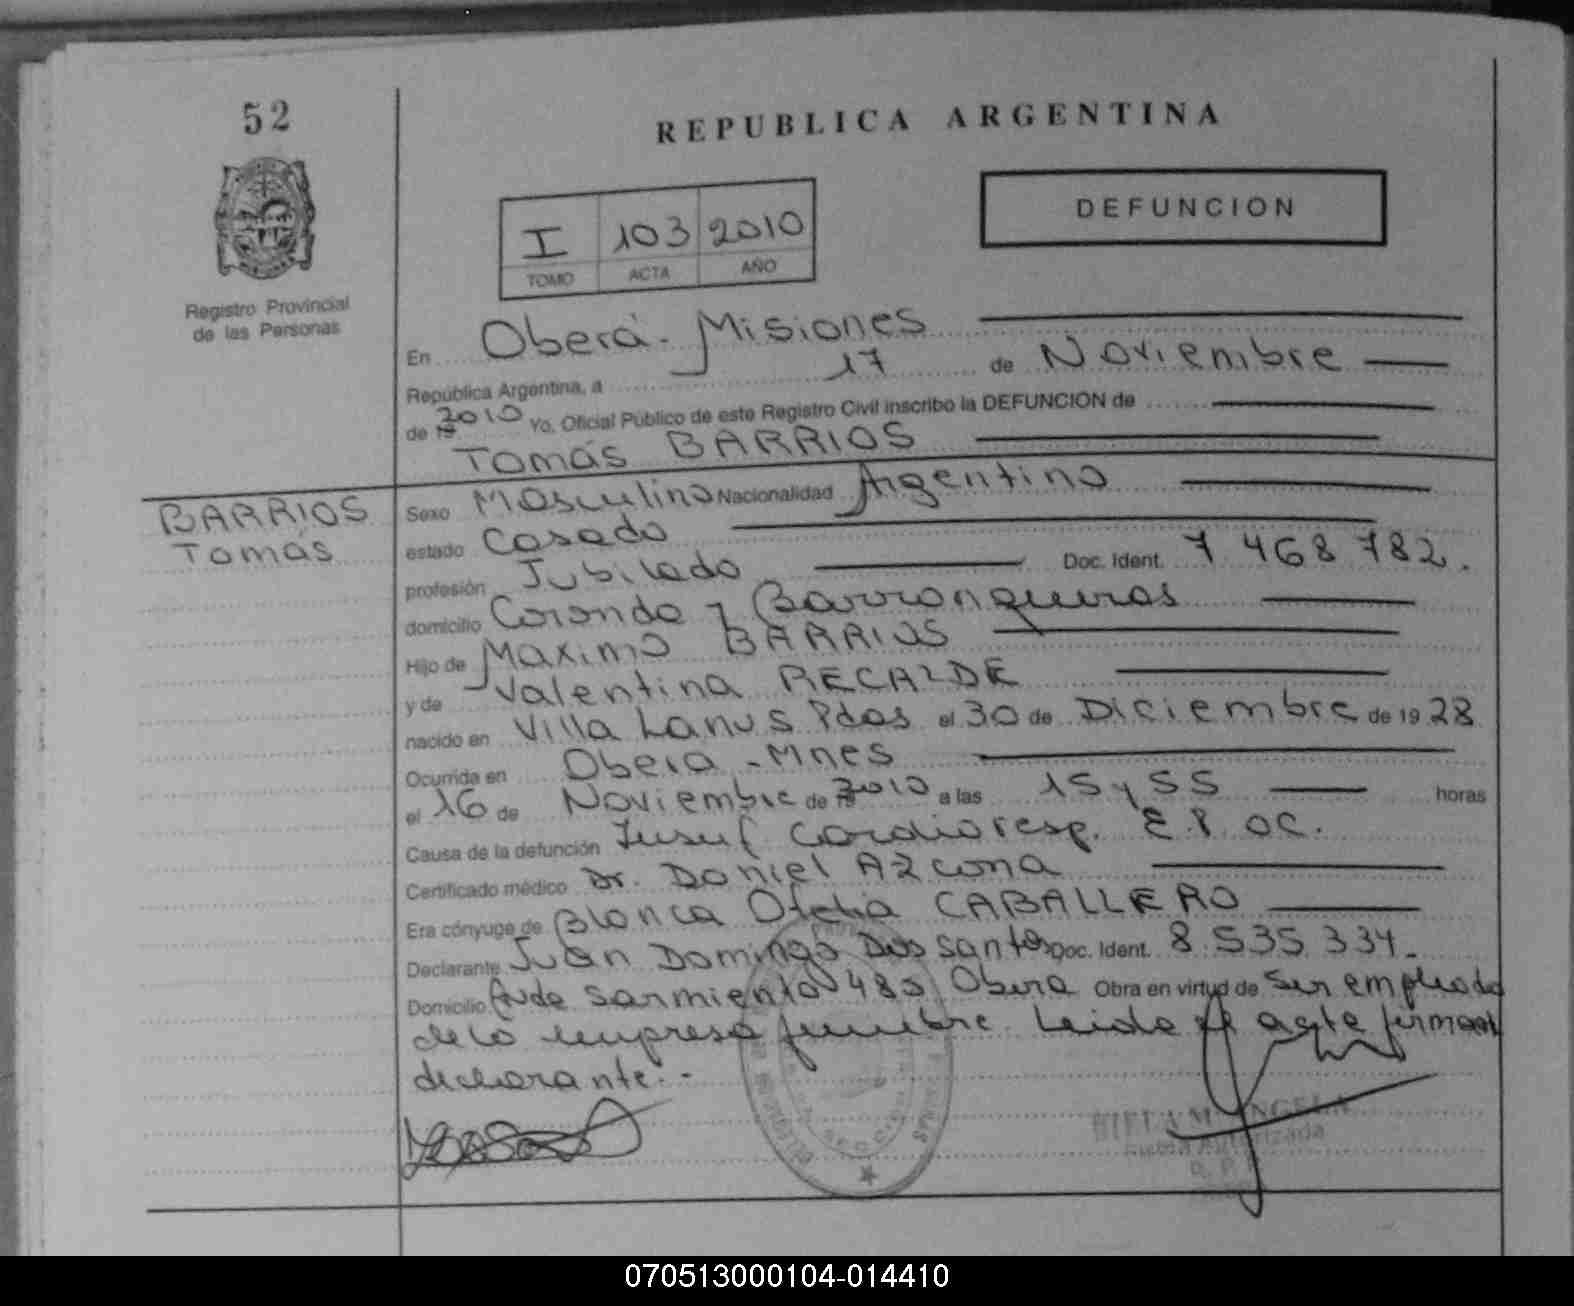 52
REPUBLICA ARGENTINA
Registro Provincial
de las Personas
I 103 2010
TOMO ACTA AÑO
DEFUNCION
En Oberá - Misiones
República Argentina, a 17 de Noviembre
de 2010 Yo, Oficial Público de este Registro Civil inscribo la DEFUNCION de
Tomás BARRIOS
BARRIOS
Tomás
Sexo Masculino Nacionalidad Argentino
estado Casado
profesión Jubilado Doc. Ident. 7 468 782.
domicilio Coronda y Barranqueras
Hijo de Maximo BARRIOS
y de Valentina RECALDE
nacido en Villa Lanus Pdas el 30 de Diciembre de 1928
Ocurrida en Obera - Mnes
el 16 de Noviembre de 2010 a las 15 y 55 horas
Causa de la defunción Insuf Cardioresp. E.P.OC.
Certificado médico Dr. Daniel AZcona
Era cónyuge de Blanca Ofelia CABALLERO
Declarante Juan Domingo Dos santos Doc. Ident. 8.535.334.
Domicilio Avda Sarmiento 480 Obera Obra en virtud de Ser empleado
de la empresa funebre. Leida el acta firman
declarante.-
070513000104-014410